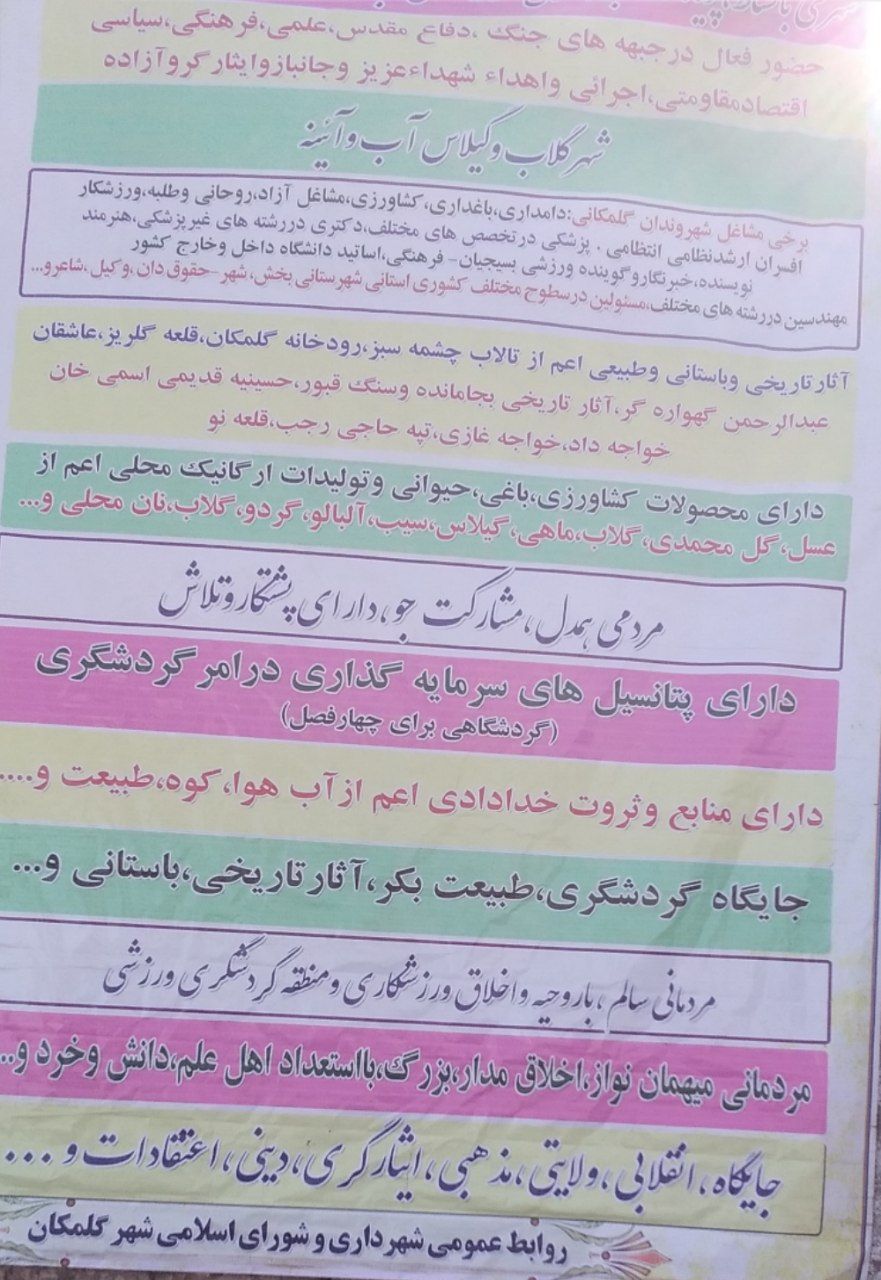 شهری باستانی،
حضور فعال درجبهه های جنگ ،دفاع مقدس،علمی،فرهنگی،سیاسی
اقتصادمقاومتی،اجرائی واهداء شهداءعزیز وجانبازوایثارگروآزاده
شهر گلاب و گیلاس آب و آئینه
برخی مشاغل شهروندان گلمکانی:دامداری،باغداری،کشاورزی،مشاغل آزاد،روحانی وطلبه،ورزشکار
افسران ارشدنظامی انتظامی . پزشکی درتخصص های مختلف،دکتری دررشته های غیرپزشکی،هنرمند
نویسنده،خبرنگاروگوینده ورزشی بسیجیان- فرهنگی،اساتید دانشگاه داخل وخارج کشور
مهندسین دررشته های مختلف،مسئولین درسطوح مختلف کشوری استانی شهرستانی بخش، شهر-حقوق دان ،وکیل ،شاعرو...
آثارتاریخی وباستانی وطبیعی اعم از تالاب چشمه سبز،رودخانه گلمکان،قلعه گلریز،عاشقان
عبدالرحمن گهواره گر،آثار تاریخی بجامانده وسنگ قبور،حسینیه قدیمی اسمی خان
خواجه داد،خواجه غازی،تپه حاجی رجب،قلعه نو
دارای محصولات کشاورزی،باغی،حیوانی وتولیدات ارگانیک محلی اعم از
عسل،گل محمدی،گلاب،ماهی،گیلاس،سیب،آلبالو،گردو،گلاب،نان محلی و...
مردمی همدل،مشارکت جو،دارای پشتکار و تلاش
دارای پتانسیل های سرمایه گذاری درامرگردشگری
(گردشگاهی برای چهارفصل)
دارای منابع وثروت خدادادی اعم ازآب هوا،کوه،طبیعت و....
جایگاه گردشگری،طبیعت بکر،آثارتاریخی،باستانی و...
مردمانی سالم ،باروحیه واخلاق ورزشکاری ومنطقه گردشگری ورزشی
مردمانی میهمان نواز،اخلاق مدار،بزرگ،بااستعداد اهل علم،دانش وخرد و..
جایگاه، انقلابی، ولایتی، مذهبی، ایثارگری، دینی، اعتقادات و ...
روابط عمومی شهرداری و شورای اسلامی شهر گلمکان